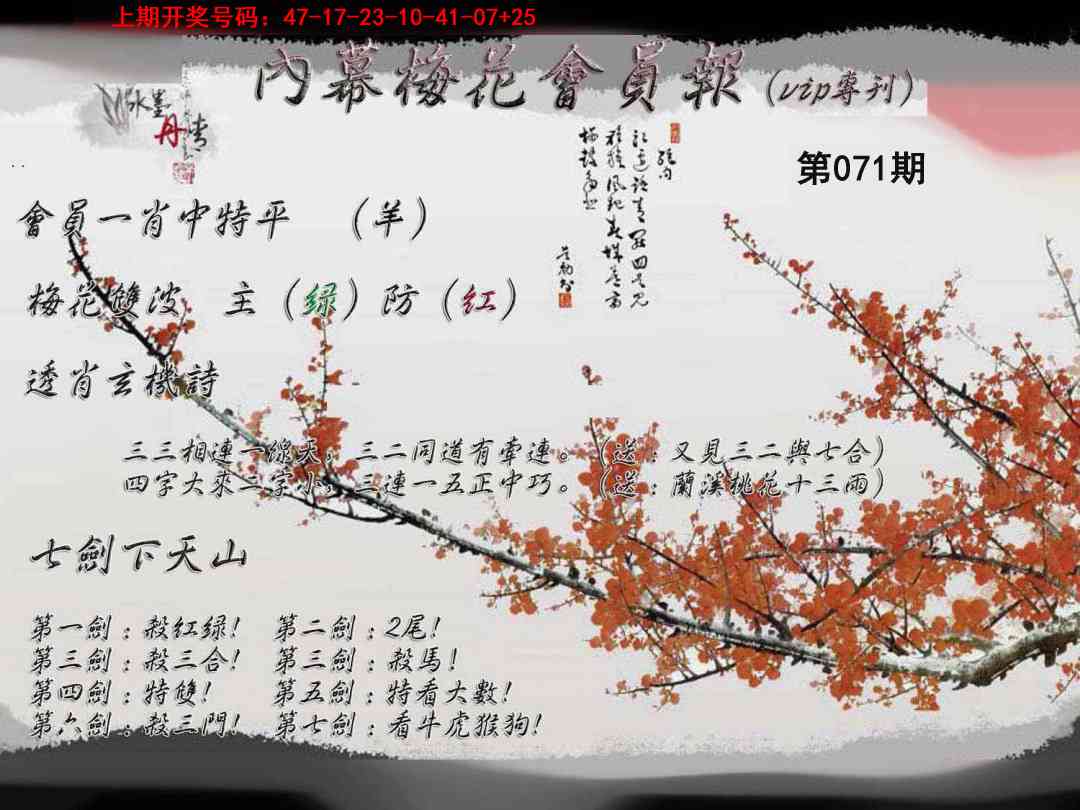 上期开奖号码：47-17-23-10-41-07+25
內幕梅花會員報（vip專刊）
水墨
丹青
第071期
會員一肖中特平 （羊）
梅花雙波 主（绿）防（红）
透肖玄機詩
三三相連一線天，三二同道有牽連。（送：又見三二與七合）
四字大來二字小，三連一五正中巧。（送：蘭溪桃花十三雨）
七劍下天山
第一劍：殺红绿! 第二劍：2尾!
第三劍：殺三合! 第三劍：殺馬!
第四劍：特雙! 第五劍：特看大數!
第六劍：殺三門! 第七劍：看牛虎猴狗!